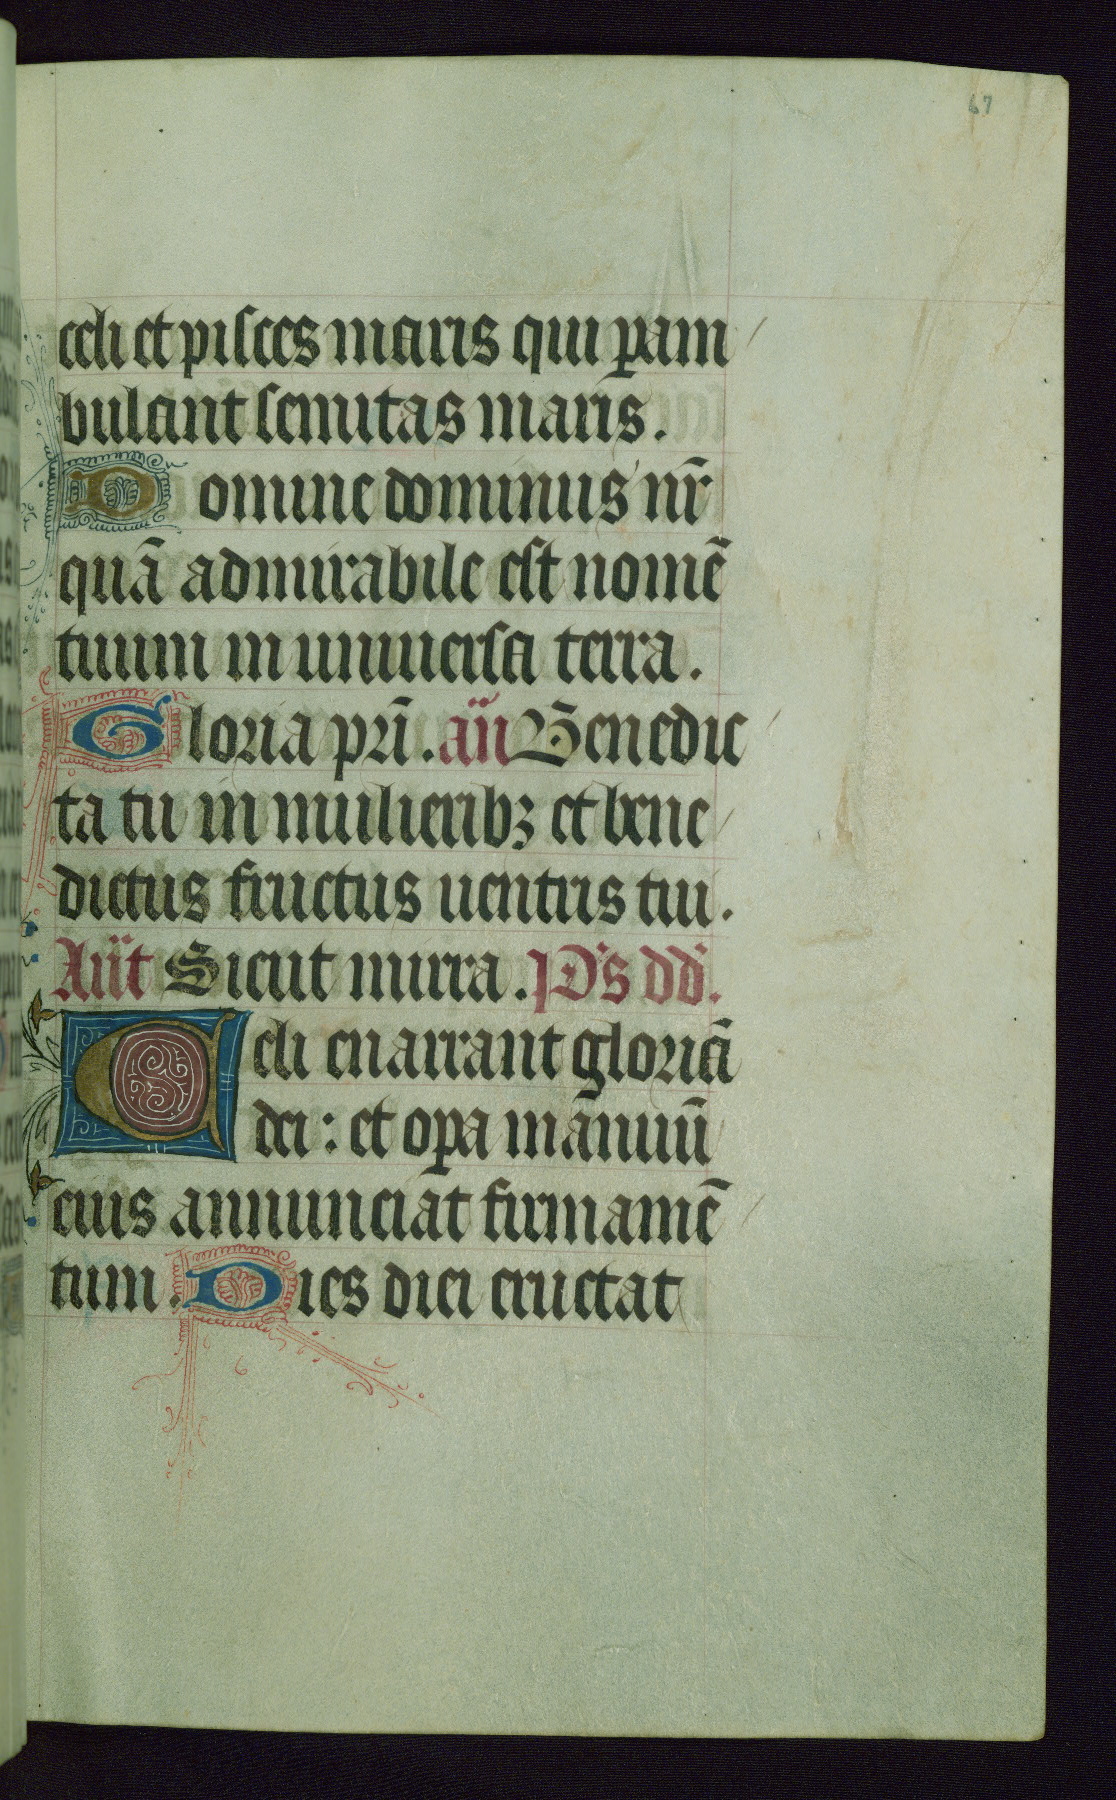 67
celi et pisces maris qui ꝑam
bulant semitas maris.
Domine dominus nr̄
quā admirabile est nomē
tuum in uniuersa terra.
Gloria pr̄i. an̄ Benedic
ta tu in mulieribꝫ et bene
dictus fructus uentris tui.
Ant̄ Sicut mirra. Ps dd̄.
Celi enarrant gloriā
dei: et oꝑa manuū
eius annunciat firmamē
tum. Dies diei eructat